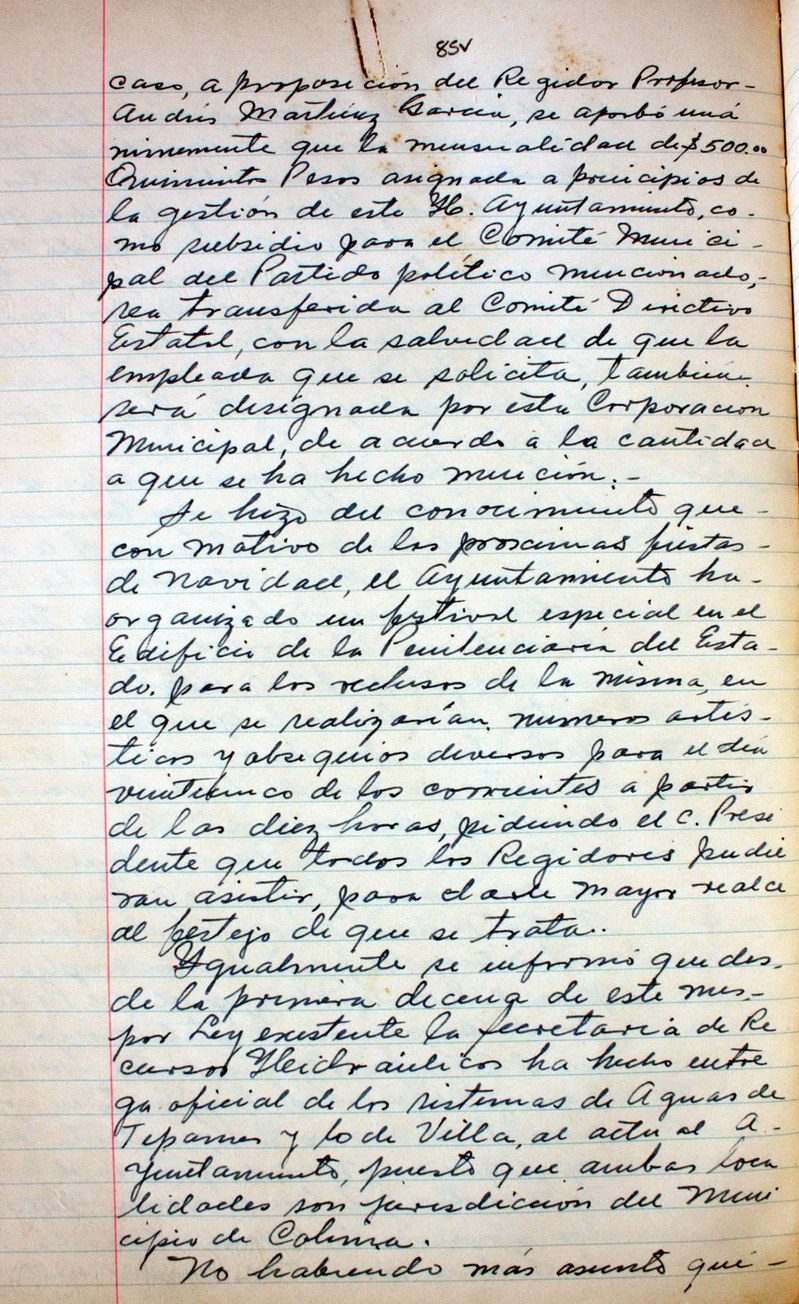 85v
caso, a proposición del Regidor Profesor-
Andrés Martínez García, se aprobó uná
nimemente que la mensualidad de $500.00
Quinientos Pesos asignada a principios de
la gestión de este H. Ayuntamiento, co-
mo subsidio para el Comité Munici-
pal del Partido político mencionado,-
sea transferida al Comité Directivo
Estatal, con la salvedad de que la
empleada que se solicita, también-
será designada por esta Corporación
Municipal, de acuerdo a la cantidad
a que se ha hecho mención.-
Se hizo del conocimiento que-
con motivo de las proximas fiestas-
de Navidad, el Ayuntamiento ha-
organizado un festival especial en el
Edificio de la Penitenciaría del Esta-
do. para los reclusos de la misma, en
el que se realizarían números artís-
ticos y obsequios diversos para el día
veinticinco de los corrientes a partir
de las diez horas, pidiendo el C. Presi
dente que todos los Regidores pudie
ran asistir, para darle mayor realce
al festejo de que se trata..
Ygualmente se informó que des-
de la primera decena de este mes,-
por Ley existente la Secretaría de Re
cursos Hidráulicos ha hecho entre
ga oficial de los sistemas de Aguas de
Tepames y Lo de Villa, al actual A-
yuntamiento, puesto que ambas loca
lidades son jurisdicción del Muni
cipio de Colima.
No habiendo más asunto que-